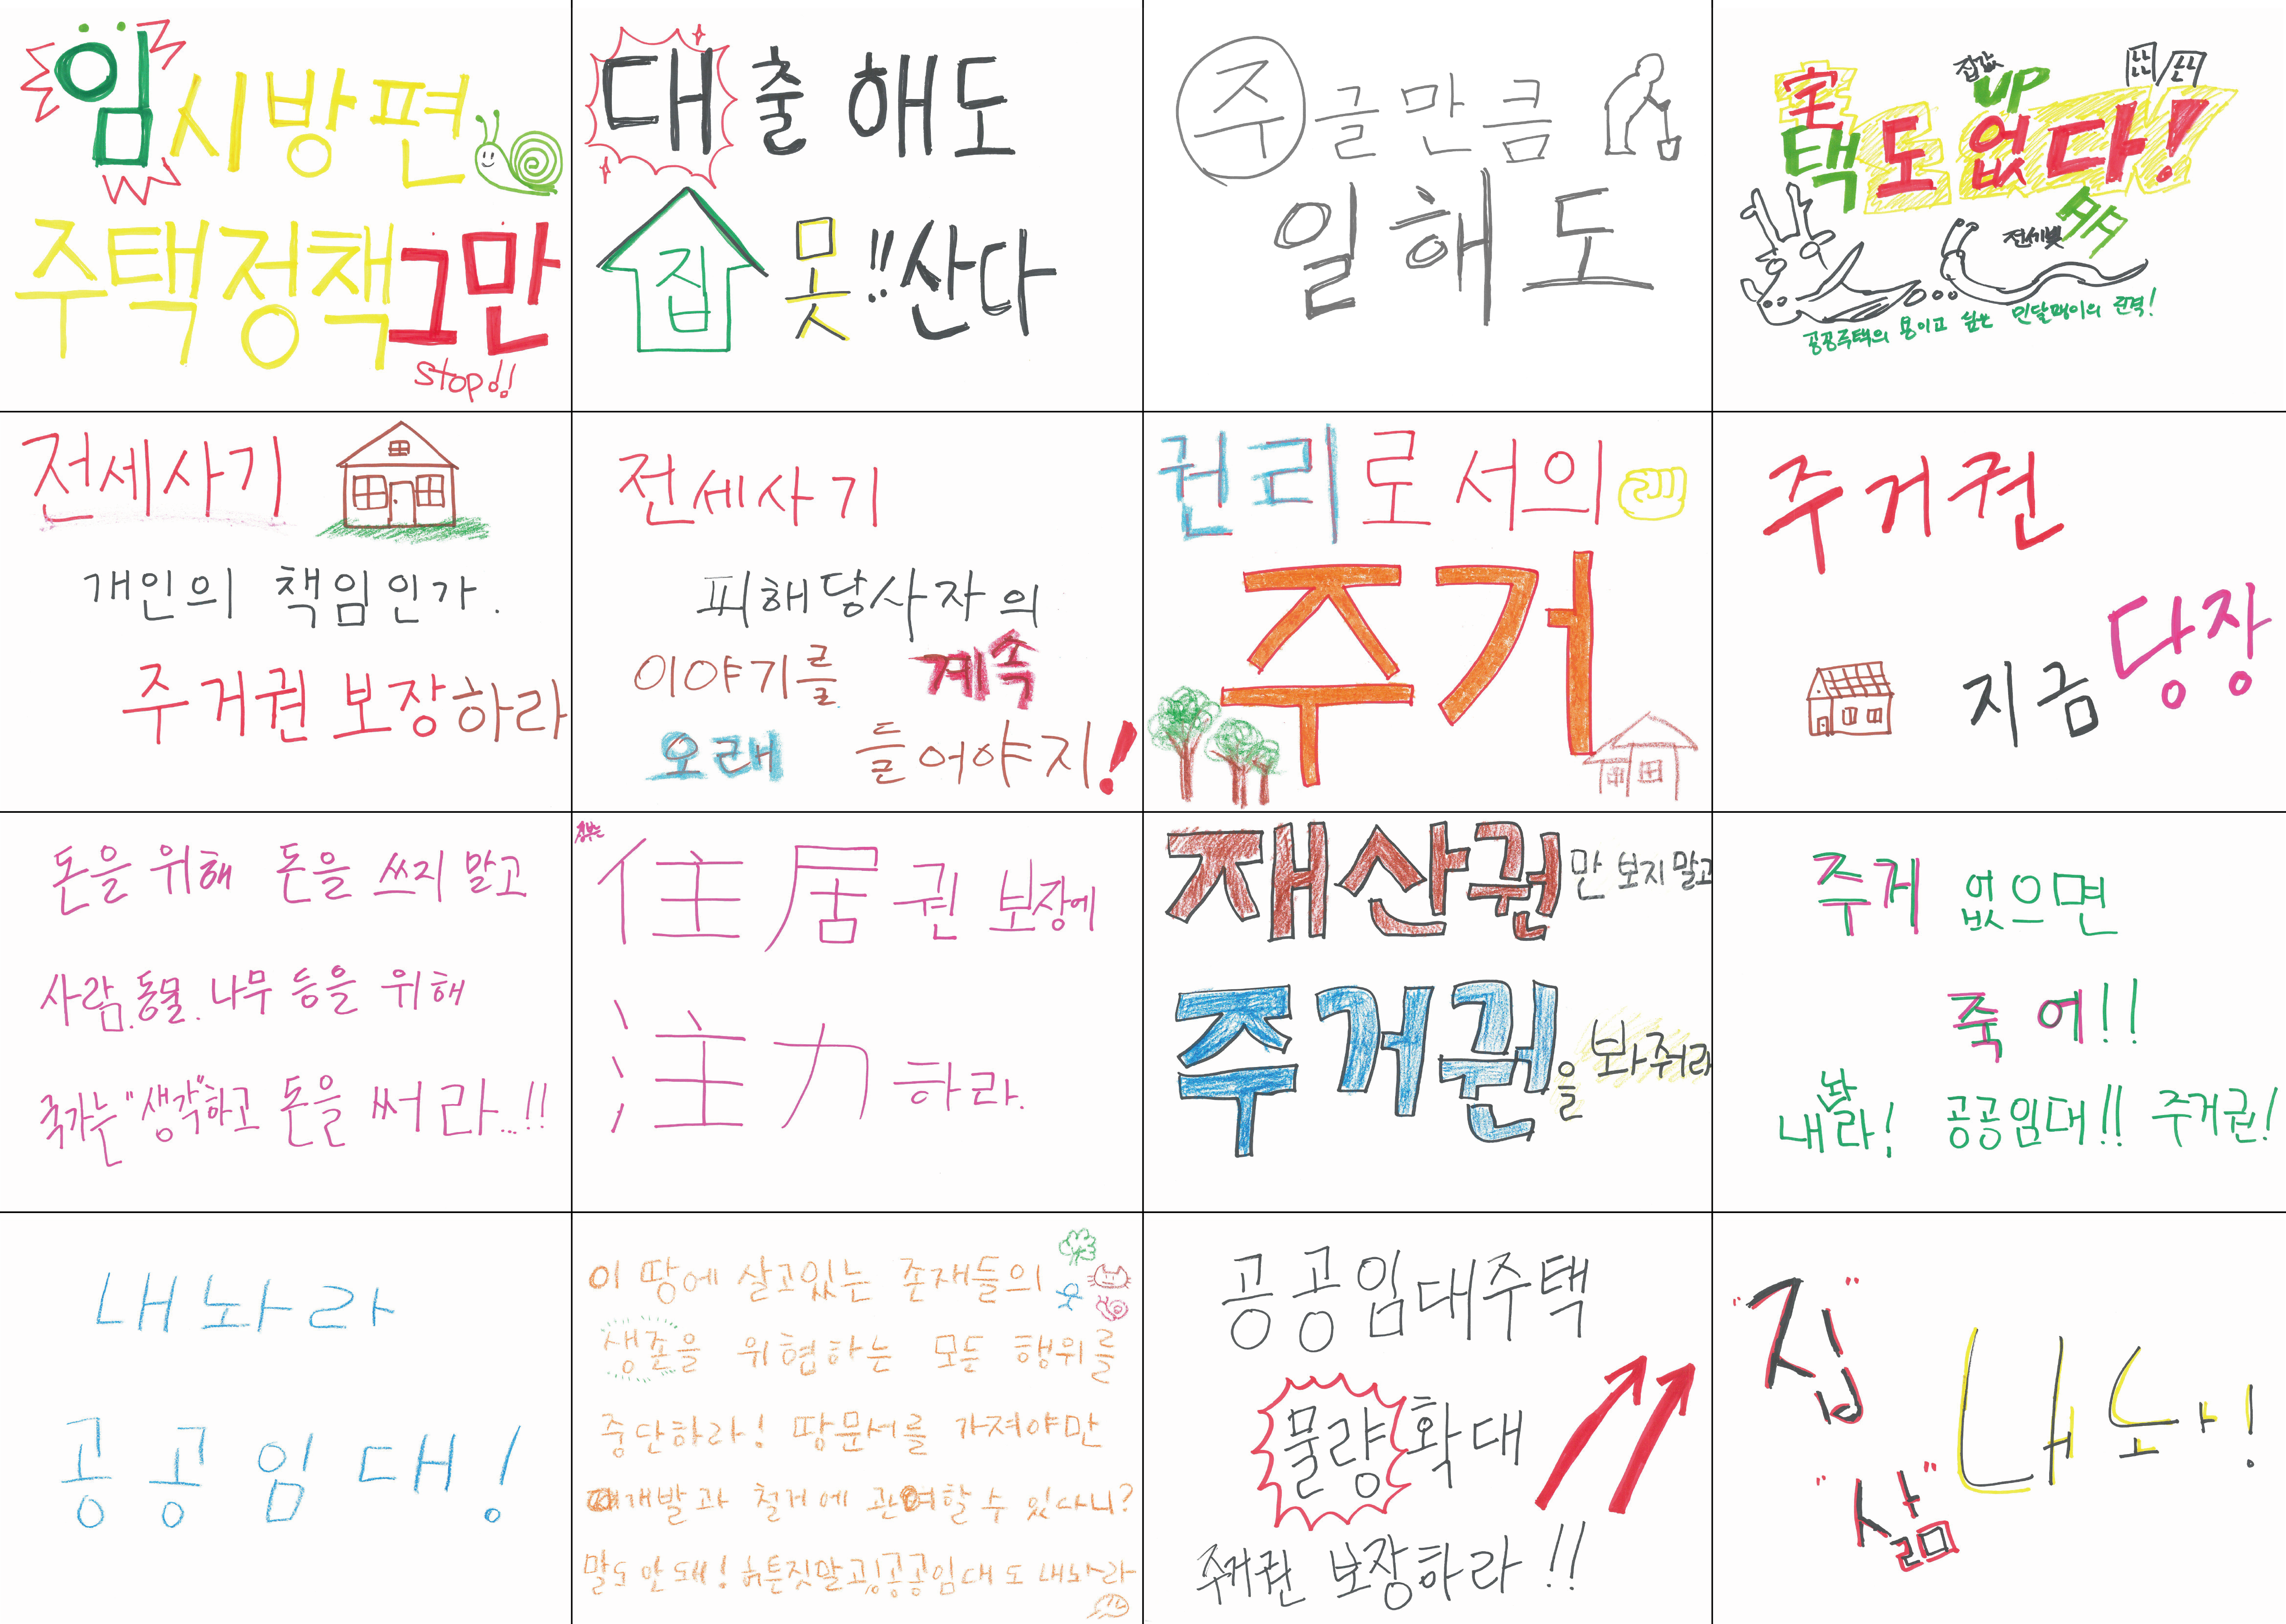 임시방편
주택정책그만
stop!!
대출 해도
집 못!! 산다
주글만큼
일해도
집값
UP
宅택도 없다!
전세빚
공공주택의 용이고 싶은 민달팽이의 진격!
전세사기
개인의 책임인가.
주거권 보장하라
전세사기
피해당사자의
이야기를 계속
오래 들어야지!
권리로서의
주거
주거권
지금 당장
돈을 위해 돈을 쓰지 말고
사람.동물.나무 등을 위해
국가는 "생각"하고 돈을 써라...!!
정부는
住居권 보장에
注力하라.
재산권만 보지 말고
주거권을 봐줘라
주거 없으면
죽어!!
내놔라! 공공임대!! 주거권!
내놔라
공공임대!
이 땅에 살고있는 존재들의
생존을 위협하는 모든 행위를
중단하라! 땅문서를 가져야만
개발과 철거에 관여할 수 있다니?
말도 안돼! 허튼짓말고, 공공임대도 내놔라
공공임대주택
물량확대
주거권 보장하라!!
"집"
내놔!
"삶"